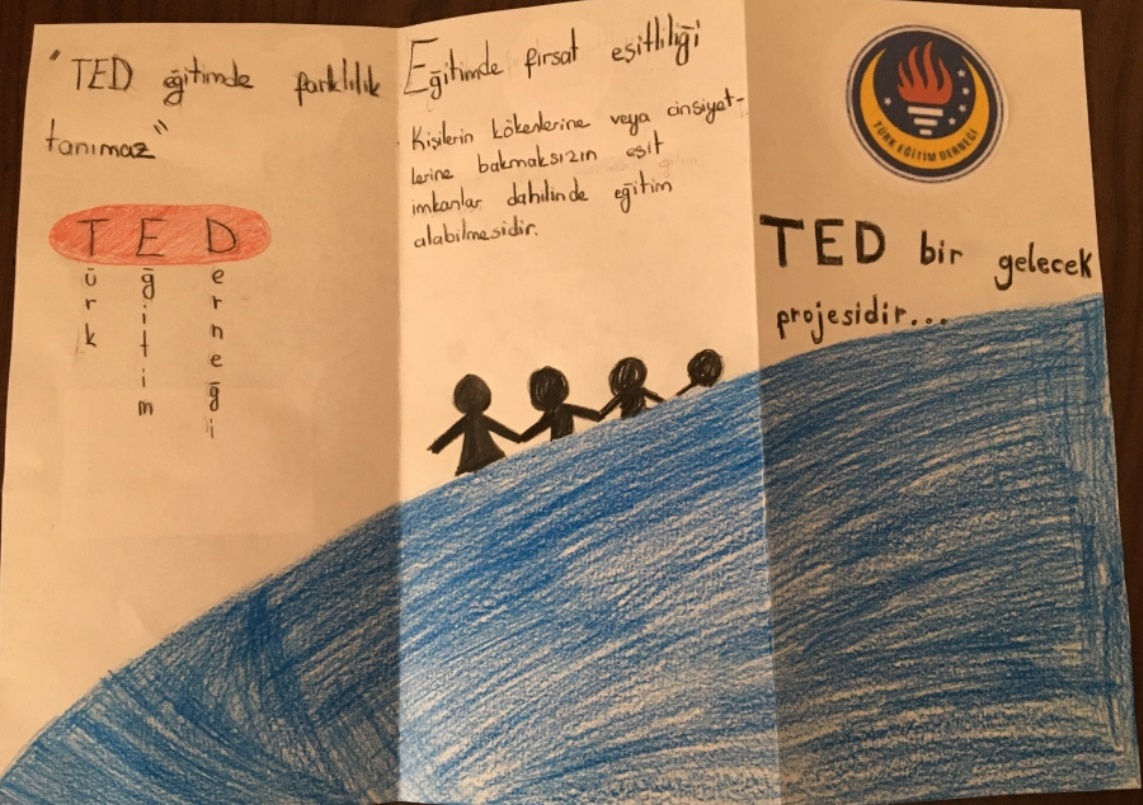 "TED eğitimde farklılık
tanımaz"
TED
Türk
Eğitim
Derneği
Eğitimde fırsat eşitliliği
Kişilerin kökenlerine veya cinsiyet-
lerine bakmaksızın eşit
imkanlar dahilinde eğitim
alabilmesidir.
TÜRK EĞİTİM DERNEĞİ
TED bir gelecek
projesidir...